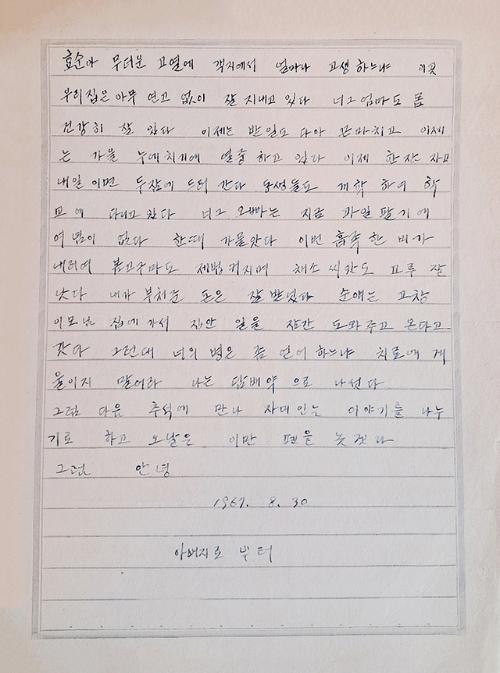 효순아 무더운 고열에 객지에서 얼마나 고생 하느냐 이곳
우리집은 아무 연고 없이 잘 지내고 있다 너그 엄마도 몸
건강히 잘 있다 이제는 밭일도 다 마치고 이제
는 가을 누에치기에 열중 하고 있다 이제 한잠 자고
내일 이면 두잠에 드러 간다 동생들도 개학 하여 학
교에 다니고 있다 너그 오빠는 지금 과일 팔기에
여념이 없다 한때 가물랐다 이번 흡족 한 비가
내리여 고구마도 제법 커지며 채소 씨앗도 고루 잘
낫다 내가 부처준 돈은 잘 받았다 순애는 고창
이모님 집에 가서 집안 일을 잠간 도와주고 온다고
갓다 그런대 너의 병은 좀 언어하느냐 치료에 게
을이지 말어라 나는 담배약 으로 나선다
그럼 다음 추석에 만나 자미있는 이야기를 나누
기로 하고 오날은 이만 펜을 놋겠다
그럼 안녕
1967. 8. 30
아버지로 부터